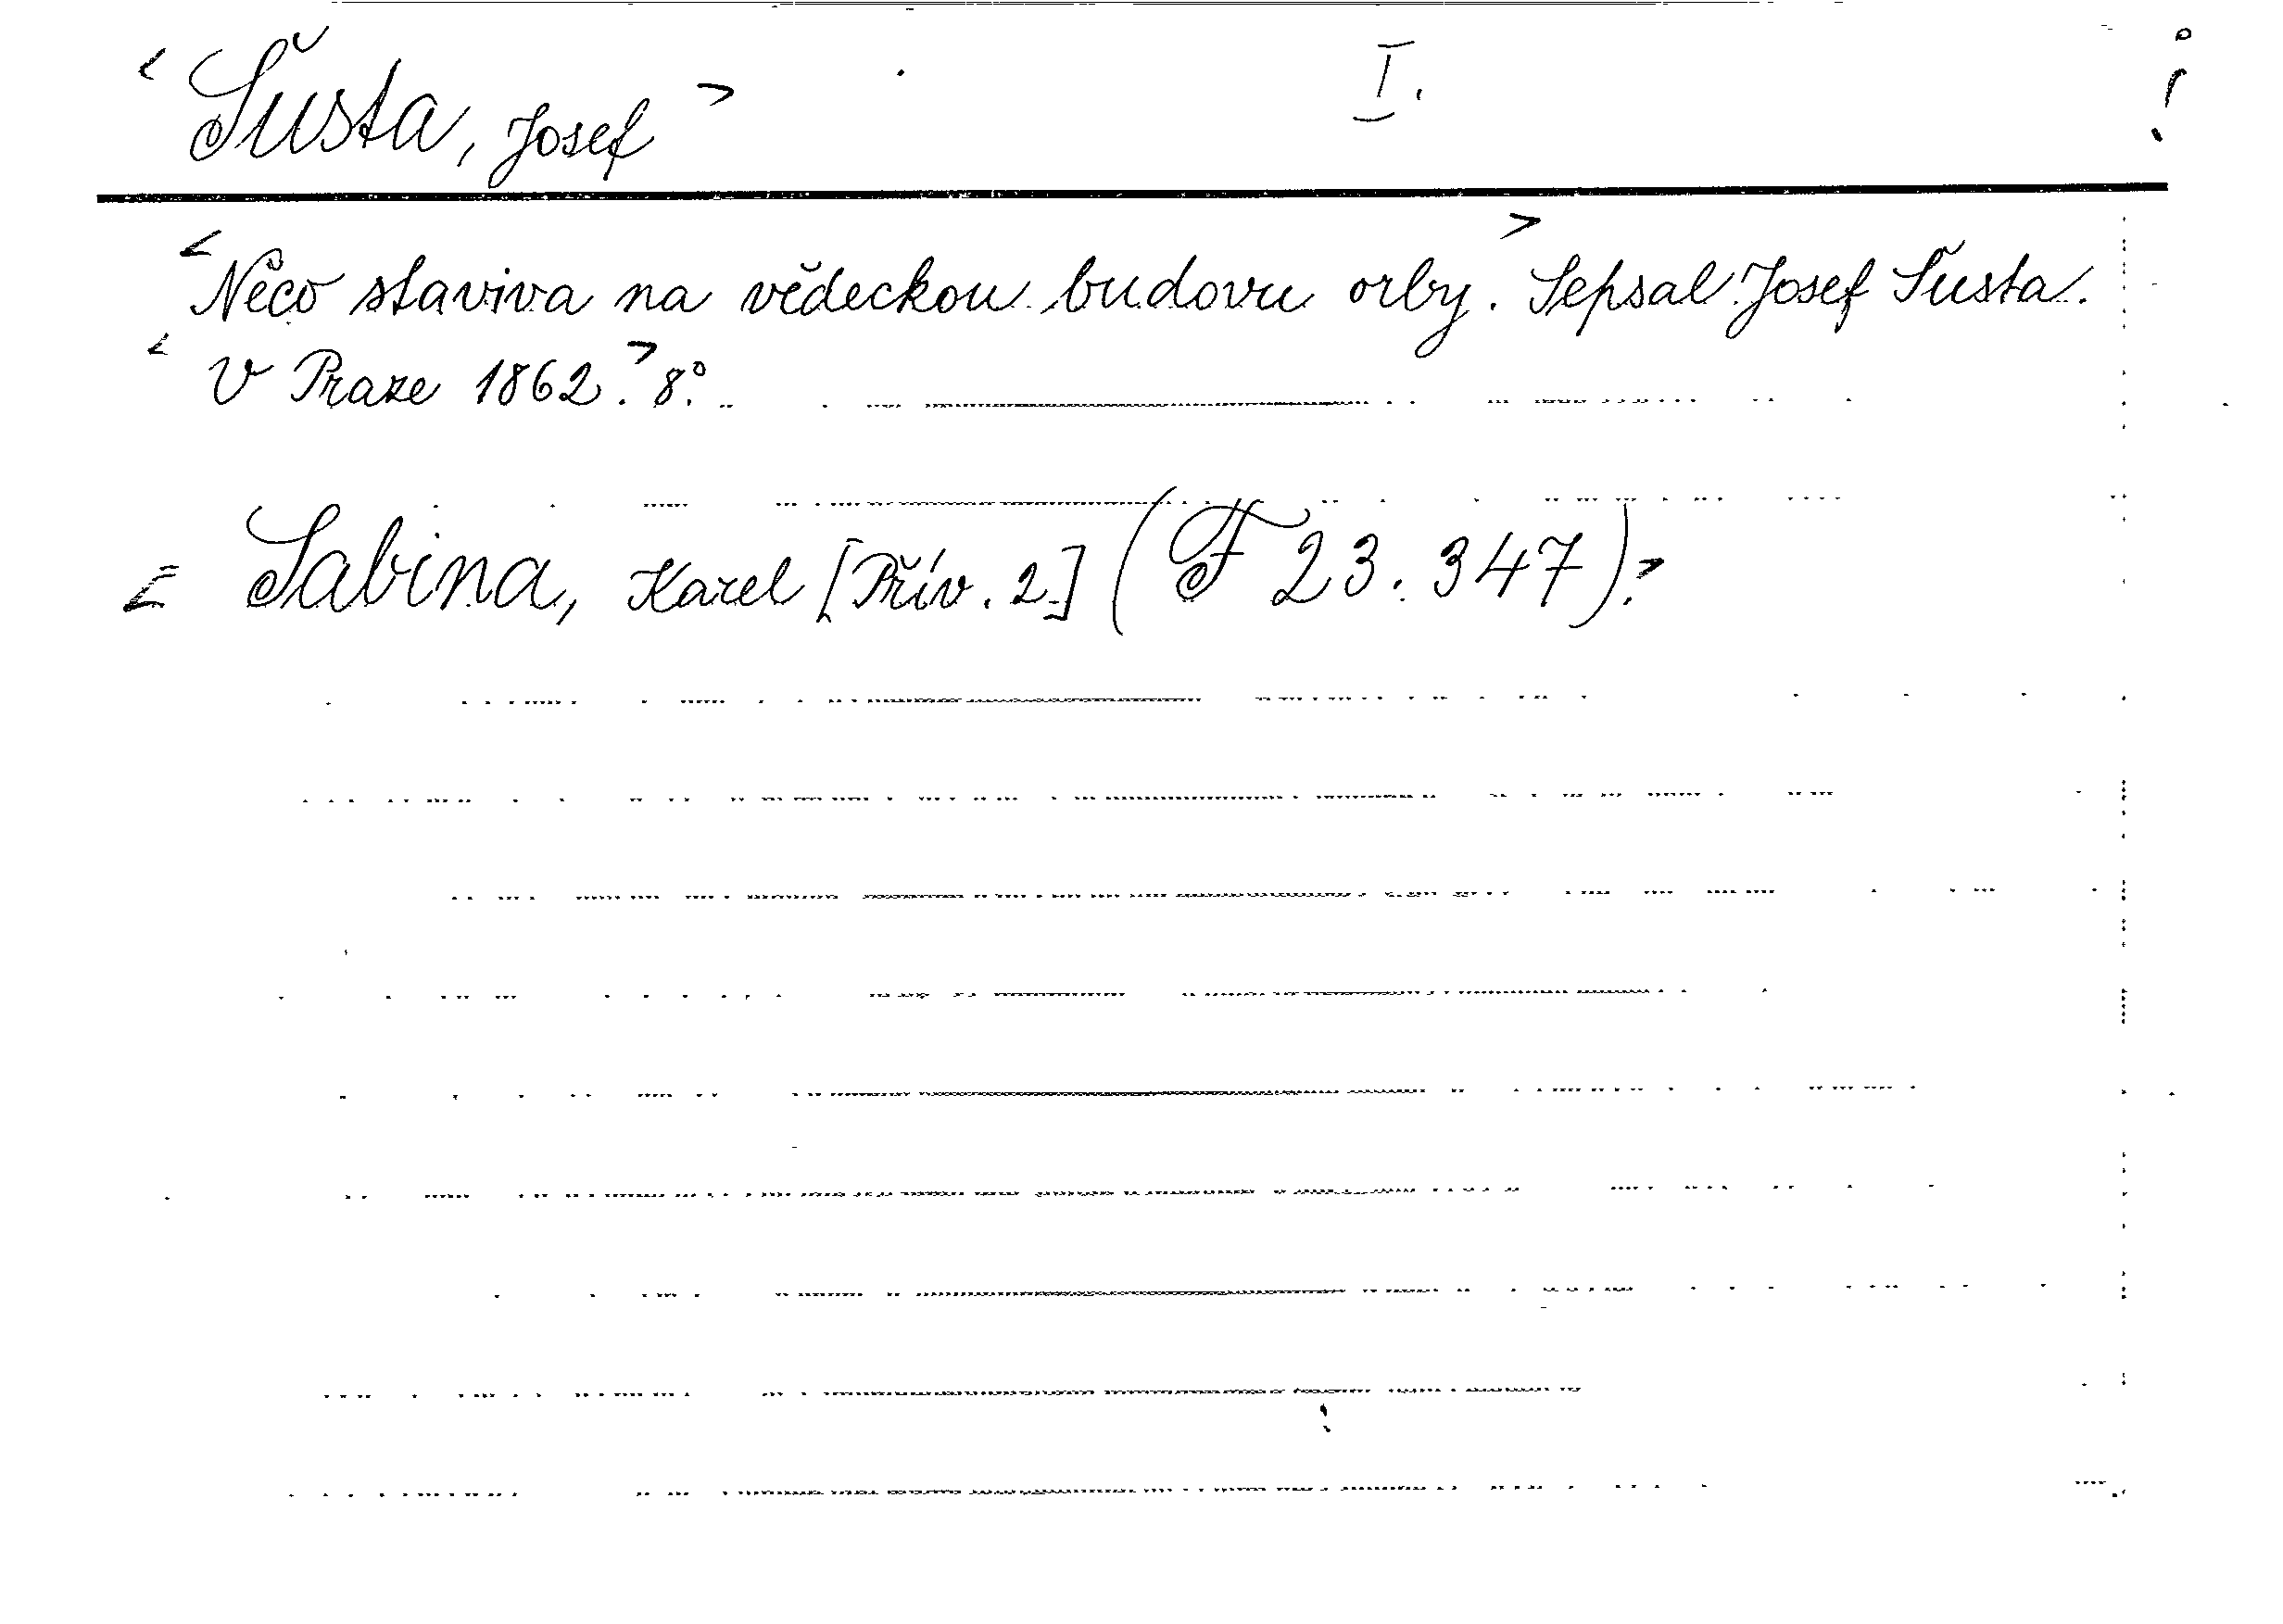 < Šusta, Josef > I. !
< Něco staviva na vědeckou budovu orby. > Sepsal Josef Šusta.
< V Praze 1862. > 8.°
= Sabina, Karel [Přív. 2.] (F 23.347). >